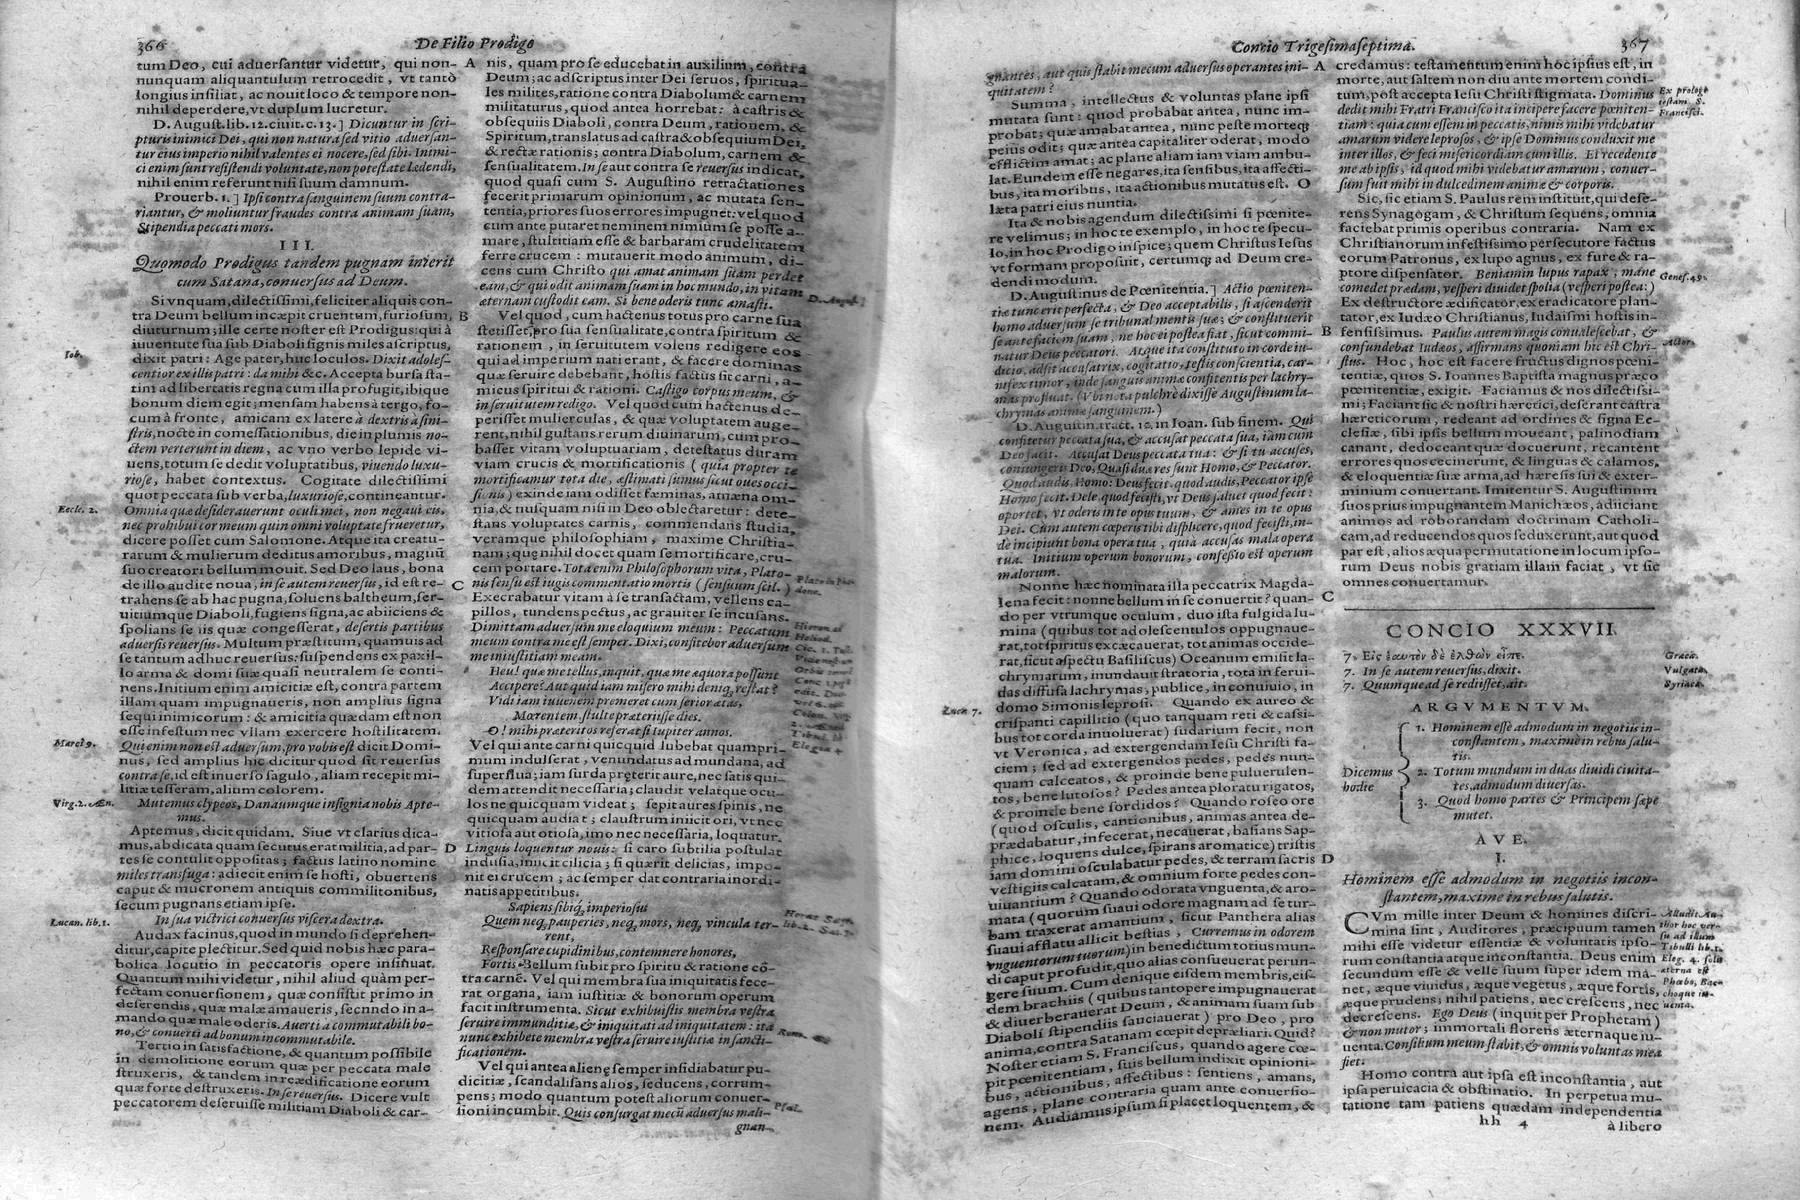 366
De Filio Prodigo
tum Deo, cui aduersantur videtur, qui non-
nunquam aliquantulum retrocedit, vt tantò
longius insiliat, ac nouit loco & tempore non-
nihil deperdere, vt duplum lucretur.
D. August. lib. 12. ciuit. c. 13.] Dicuntur in scri-
pturis inimici Dei, qui non natura sed vitio aduersan-
tur eius imperio nihil valentes ei nocere, sed sibi. Inimi-
ci enim sunt resistendi voluntate, non potestate lædendi,
nihil enim referunt nisi suum damnum.
Prouerb. 1.] Ipsi contra sanguinem suum contra-
riantur, & moliuntur fraudes contra animam suam,
Stipendia peccati mors.
III.
Quomodo Prodigus tandem pugnam inierit
cum Satana, conuersus ad Deum.
Si vnquam, dilectissimi, feliciter aliquis con-
tra Deum bellum incæpit cruentum, furiosum,
diuturnum; ille certe noster est Prodigus: qui à
iuuentute sua sub Diaboli signis miles ascriptus,
dixit patri: Age pater, huc loculos. Dixit adoles-
centior ex illis patri: da mihi &c. Accepta bursa sta-
tim ad libertatis regna cum illa profugit, ibique
bonum diem egit; mensam habens à tergo, fo-
cum à fronte, amicam ex latere à dextris à sini-
stris, nocte in comessationibus, die in plumis no-
ctem verterunt in diem, ac vno verbo lepide vi-
uens, totum se dedit voluptatibus, viuendo luxu-
riose, habet contextus. Cogitate dilectissimi
quot peccata sub verba, luxuriose, contineantur.
Omnia quæ desiderauerunt oculi mei, non negaui eis,
nec prohibui cor meum quin omni voluptate frueretur,
dicere posset cum Salomone. Atque ita creatu-
rarum & mulierum deditus amoribus, magnũ
suo creatori bellum mouit. Sed Deo laus, bona
de illo audite noua, in se autem reuersus, id est re-
trahens se ab hac pugna, soluens baltheum, ser-
uitiumque Diaboli, fugiens signa, ac abiiciens &
spolians se iis quæ congesserat, desertis partibus
aduersis reuersus. Multum præstitum, quamuis ad
se tantum adhuc reuersus: suspendens ex paxil-
lo arma & domi suæ quasi neutralem se conti-
nens. Initium enim amicitiæ est, contra partem
illam quam impugnaueris, non amplius signa
sequi inimicorum: & amicitia quædam est non
esse infestum nec vllam exercere hostilitatem.
Qui enim non est aduersum, pro vobis est dicit Domi-
nus, sed amplius hic dicitur quod sit reuersus
contra se, id est inuerso sagulo, aliam recepit mi-
litiæ tesseram, alium colorem.
Mutemus clypeos, Danaumque insignia nobis Apte-
mus.
Aptemus, dicit quidam. Siue vt clarius dica-
mus, abdicata quam secutus erat militia, ad par-
tes se contulit oppositas; factus latino nomine
miles transfuga: adiecit enim se hosti, obuertens
caput & mucronem antiquis commilitonibus,
secum pugnans etiam ipse.
In sua victrici conuersus viscera dextra.
Audax facinus, quod in mundo si deprehen-
ditur, capite plectitur. Sed quid nobis hæc para-
bolica locutio in peccatoris opere insinuat.
Quantum mihi videtur, nihil aliud quàm per-
fectam conuersionem, quæ consistit primo in
deserendis, quæ malæ amaueris, secnndo in a-
mando quæ male oderis. Auerti a commutabili bo-
no, & conuerti ad bonum incommutabile.
Tertio in satisfactione, & quantum possibile
in demolitione eorum quæ per peccata male
struxeris, & tandem in reædificatione eorum
quæ forte destruxeris. In se reuersus. Dicere vult
peccatorem deseruisse militiam Diaboli & car-
Iob.
Eccle. 2.
Marci 9.
Virg. 2. Æn.
Lucan. lib. 1.
A
B
C
D
nis, quam pro se educebat in auxilium, contra
Deum; ac adscriptus inter Dei seruos, spiritua-
les milites, ratione contra Diabolum & carnem
militaturus, quod antea horrebat: à castris &
obsequiis Diaboli, contra Deum, rationem, &
Spiritum, translatus ad castra & obsequium Dei,
& rectæ rationis; contra Diabolum, carnem &
sensualitatem. In se aut contra se reuersus indicat,
quod quasi cum S. Augustino retractationes
fecerit primarum opinionum, ac mutata sen-
tentia, priores suos errores impugnet: vel quod
cum ante putaret neminem nimium se posse a-
mare, stultitiam esse & barbaram crudelitatem
ferre crucem: mutauerit modo animum, di-
cens cum Christo qui amat animam suam perdet
eam, & qui odit animam suam in hoc mundo, in vitam
æternam custodit eam. Si bene oderis tunc amasti.
Vel quod, cum hactenus totus pro carne sua
stetisset, pro sua sensualitate, contra spiritum &
rationem, in seruitutem volens redigere eos
qui ad imperium nati erant, & facere dominas
quæ seruire debebant, hostis factus sit carni, a-
micus spiritui & rationi. Castigo corpus meum, &
in seruitutem redigo. Vel quod cum hactenus de-
perisset mulierculas, & quæ voluptatem auge-
rent, nihil gustans rerum diuinarum, cum pro-
basset vitam voluptuariam, detestatus duram
viam crucis & mortificationis (quia propter te
mortificamur tota die, æstimati sumus sicut oues occi-
sionis) exinde iam odisset fæminas, amæna om-
nia, & nusquam nisi in Deo oblectaretur: dete-
stans voluptates carnis, commendans studia,
veramque philosophiam, maxime Christia-
nam; quę nihil docet quam se mortificare, cru-
cem portare. Tota enim Philosophorum vita, Plato-
nis sensu est iugis commentatio mortis (sensuum scil.)
Execrabatur vitam à se transactam, vellens ca-
pillos, tundens pectus, ac grauiter se incusans.
Dimittam aduersum me eloquium meum: Peccatum
meum contra me est semper. Dixi, confitebor aduersum
me iniustitiam meam.
Heu! quæ me tellus, inquit, quæ me æquora possunt
Accipere? Aut quid iam misero mihi deniq, restat?
Vidi iam iuuenem premeret cum serior ætas,
Mœrentem, stulte præteriisse dies.
O! mihi præteritos referat si Iupiter annos.
Vel qui ante carni quicquid lubebat quampri-
mum indulserat, venundatus ad mundana, ad
superflua; iam surda pręterit aure, nec satis qui-
dem attendit necessaria; claudit velatque ocu-
los ne quicquam videat; sepit aures spinis, ne
quicquam audiat; claustrum iniicit ori, vt nec
vitiosa aut otiosa, imo nec necessaria, loquatur.
Linguis loquentur nouis: si caro subtilia postulat
indusia, iniicit cilicia; si quærit delicias, impo-
nit ei crucem; ac semper dat contraria inordi-
natis appetitibus.
Sapiens sibiq, imperiosus
Quem neq, pauperies, neq, mors, neq, vincula ter-
rent,
Responsare cupidinibus, contemnere honores,
Fortis. Bellum subit pro spiritu & ratione cõ-
tra carnẽ. Vel qui membra sua iniquitatis fece-
rat organa, iam iustitiæ & bonorum operum
facit instrumenta. Sicut exhibuistis membra vestra
seruire immunditiæ, & iniquitati ad iniquitatem: ita
nunc exhibete membra vestra seruire iustitiæ in sancti-
ficationem.
Vel qui antea alienę semper insidiabatur pu-
dicitiæ, scandalisans alios, seducens, corrum-
pens; modo quantum potest aliorum conuer-
sioni incumbit. Quis consurgat mecũ aduersus mali-
gnan-
D. August.
Plato in Phæ-
done.
Rom.
Psal.
Concio Trigesimaseptima.
367
gnantes, aut quis stabit mecum aduersus operantes ini-
quitatem?
Summa, intellectus & voluntas plane ipsi
mutata sunt: quod probabat antea, nunc im-
probat; quæ amabat antea, nunc peste morteq;
peius odit; quæ antea capitaliter oderat, modo
efflictim amat; ac plane aliam iam viam ambu-
lat. Eundem esse negares, ita sensibus, ita affecti-
bus, ita moribus, ita actionibus mutatus est. O
læta patri eius nuntia.
Ita & nobis agendum dilectissimi si pœnite-
re velimus; in hoc te exemplo, in hoc te specu-
lo, in hoc Prodigo inspice; quem Christus Iesus
vt formam proposuit, certumq; ad Deum cre-
dendi modum.
D. Augustinus de Pœnitentia.] Actio pœniten-
tiæ tunc erit perfecta, & Deo acceptabilis, si ascenderit
homo aduersum se tribunal mentis suæ; & constituerit
se ante faciem suam, ne hoc ei postea fiat, sicut commi-
natur Deus peccatori. Atque ita constituto in corde iu-
dicio, adsit accusatrix, cogitatio, testis conscientia, car-
nifex timor, inde sanguis animæ confitentis per lachry-
mas profluat. (Vbi nota pulchre dixisse Augustinum la-
chrymas animæ sanguinem.)
D. Augustin. tract. 12. in Ioan. sub finem. Qui
confitetur peccata sua, & accusat peccata sua, iam cum
Deo facit. Accusat Deus peccata tua: & si tu accuses,
coniungeris Deo, Quasi duæ res sunt Homo, & Peccator.
Quod audis, Homo: Deus fecit. quod audis, Peccator ipse
Homo fecit. Dele, quod fecisti, vt Deus saluet quod fecit:
oportet, vt oderis in te opus tuum, & ames in te opus
Dei. Cum autem cœperis tibi displicere, quod fecisti, in-
de incipiunt bona opera tua, quia accusas mala opera
tua. Initium operum bonorum, confessio est operum
malorum.
Nonne hæc nominata illa peccatrix Magda-
lena fecit: nonne bellum in se conuertit? quan-
do per vtrumque oculum, duo ista fulgida lu-
mina (quibus tot adolescentulos oppugnaue-
rat, tot spiritus excæcauerat, tot animas occide-
rat, sicut aspectu Basiliscus) Oceanum emisit la-
chrymarum, inundauit stratoria, tota in ferui-
das diffusa lachrymas, publice, in conuiuio, in
domo Simonis leprosi. Quando ex aureo &
crispanti capillitio (quo tanquam reti & cassi-
bus tot corda inuoluerat) sudarium fecit, non
vt Veronica, ad extergendam Iesu Christi fa-
ciem; sed ad extergendos pedes, pedes nun-
quam calceatos, & proinde bene puluerulen-
tos, bene lutosos? Pedes antea ploratu rigatos,
& proinde bene sordidos? Quando roseo ore
(quod osculis, cantionibus, animas antea de-
prædabatur, infecerat, necauerat, basians Sap-
phice, loquens dulce, spirans aromatice) tristis
iam domini osculabatur pedes, & terram sacris
vestigiis calcatam, & omnium forte pedes con-
uiuantium? Quando odorata vnguenta, & aro-
mata (quorum suaui odore magnam ad se tur-
bam traxerat amantium, sicut Panthera alias
suaui afflatu allicit bestias, Curremus in odorem
vnguentorum tuorum) in benedictum totius mun-
di caput profudit, quo alias consueuerat perun-
gere suum. Cum denique eisdem membris, eis-
dem brachiis (quibus tantopere impugnauerat
& diuerberauerat Deum, & animam suam sub
Diaboli stipendiis sauciauerat) pro Deo, pro
anima, contra Satanam cœpit depræliari. Quid?
Noster etiam S. Franciscus, quando agere cœ-
pit pœnitentiam, suis bellum indixit opinioni-
bus, actionibus, affectibus: sentiens, amans,
agens, plane contraria quam ante conuersio-
nem. Audiamus ipsum si placet loquentem, &
Lucæ 7.
A
B
C
D
credamus: testamentum enim hoc ipsius est, in
morte, aut saltem non diu ante mortem condi-
tum, post accepta Iesu Christi stigmata. Dominus
dedit mihi Fratri Francisco ita incipere facere pœniten-
tiam: quia cum essem in peccatis, nimis mihi videbatur
amarum videre leprosos, & ipse Dominus conduxit me
inter illos, & feci misericordiam cum illis. Et recedente
me ab ipsis, id quod mihi videbatur amarum, conuer-
sum fuit mihi in dulcedinem animæ & corporis.
Sic, sic etiam S. Paulus rem instituit, qui dese-
rens Synagogam, & Christum sequens, omnia
faciebat primis operibus contraria. Nam ex
Christianorum infestissimo persecutore factus
eorum Patronus, ex lupo agnus, ex fure & ra-
ptore dispensator. Beniamin lupus rapax, mane
comedet prædam, vesperi diuidet spolia (vesperi postea:)
Ex destructore ædificator, ex eradicatore plan-
tator, ex Iudæo Christianus, Iudaismi hostis in-
fensissimus. Paulus autem magis conualescebat, &
confundebat Iudæos, affirmans quoniam hic est Chri-
stus. Hoc, hoc est facere fructus dignos pœni-
tentiæ, quos S. Ioannes Baptista magnus præco
pœnitentiæ, exigit. Faciamus & nos dilectissi-
mi; Faciant sic & nostri hæretici, deserant castra
hæreticorum, redeant ad ordines & signa Ec-
clesiæ, sibi ipsis bellum moueant, palinodiam
canant, dedoceant quæ docuerunt, recantent
errores quos cecinerunt, & linguas & calamos,
& eloquentiæ suæ arma, ad hæresis sui & exter-
minium conuertant. Imitentur S. Augustinum
suos prius impugnantem Manichæos, adiiciant
animos ad roborandam doctrinam Catholi-
cam, ad reducendos quos seduxerunt, aut quod
par est, alios æqua permutatione in locum ipso-
rum Deus nobis gratiam illam faciat, vt sic
omnes conuertamur.
CONCIO XXXVII.
7. Εἰς ἑαυτὸν δὲ ἐλθὼν εἶπε.
7. In se autem reuersus, dixit.
7. Quumque ad se rediisset, ait.
ARGVMENTVM.
Dicemus
hodie
1. Hominem esse admodum in negotiis in-
constantem, maxime in rebus salu-
tis.
2. Totum mundum in duas diuidi ciuita-
tes, admodum diuersas.
3. Quod homo partes & Principem sæpe
mutet.
AVE.
I.
Hominem esse admodum in negotiis incon-
stantem, maxime in rebus salutis.
CVm mille inter Deum & homines discri-
mina sint, Auditores, præcipuum tamen
mihi esse videtur essentiæ & voluntatis ipso-
rum constantia atque inconstantia. Deus enim
secundum esse & velle suum super idem ma-
net, æque viuidus, æque vegetus, æque fortis,
æque prudens; nihil patiens, nec crescens, nec
decrescens. Ego Deus (inquit per Prophetam)
& non mutor; immortali florens æternaque iu-
uenta. Consilium meum stabit, & omnis voluntas mea
fiet.
Homo contra aut ipsa est inconstantia, aut
ipsa peruicacia & obstinatio. In perpetua mu-
tatione tam patiens quædam independentia
hh 4
à libero
Ex prologo
testam. S.
Francisci.
Genes. 49.
Actor.
Græca.
Vulgata.
Syriaca.